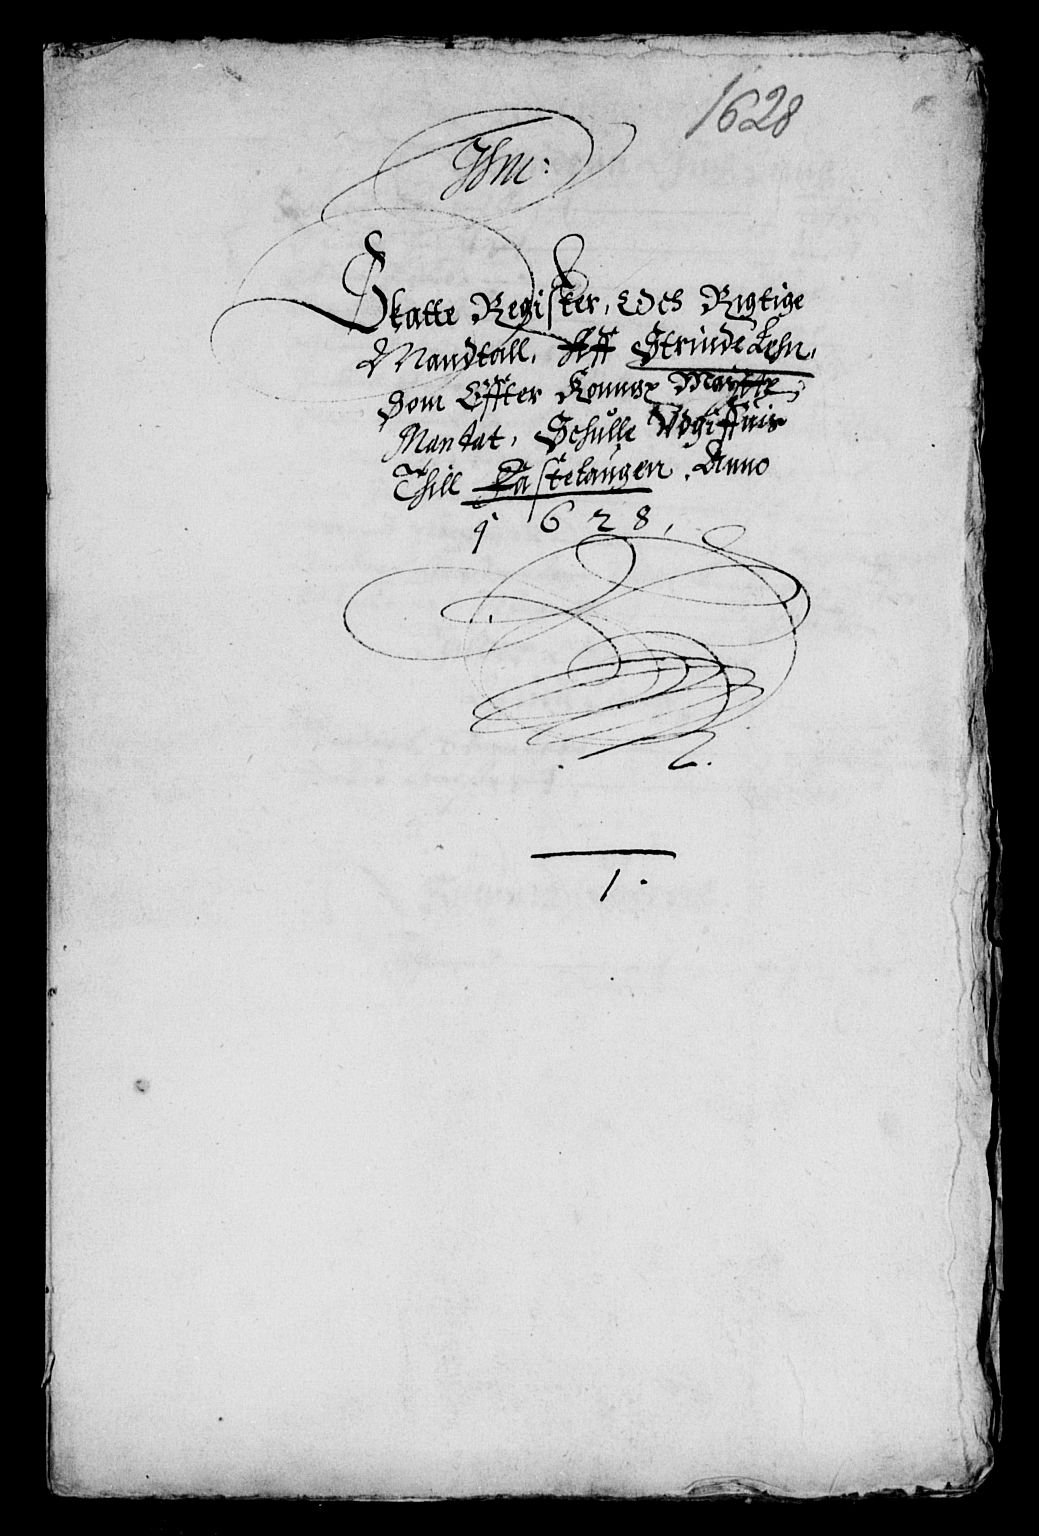 1628
Ihm:
Skatte Register, Och Rigtige
Mandtall, Aff Strinde Lehn,
Som Effter Konng: Maytts
Mandat, Schulle Vdgiffuis
Thill Fastelaugen, Anno
1628,
1.